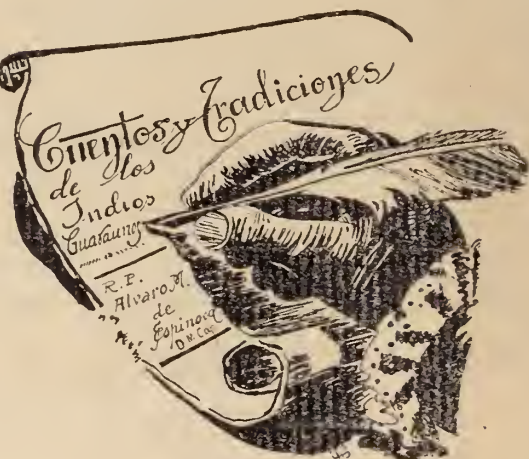 Cuentos y Tradiciones
de los
Indios
Guaraunos
R. P.
Alvaro M.
de
Espinosa